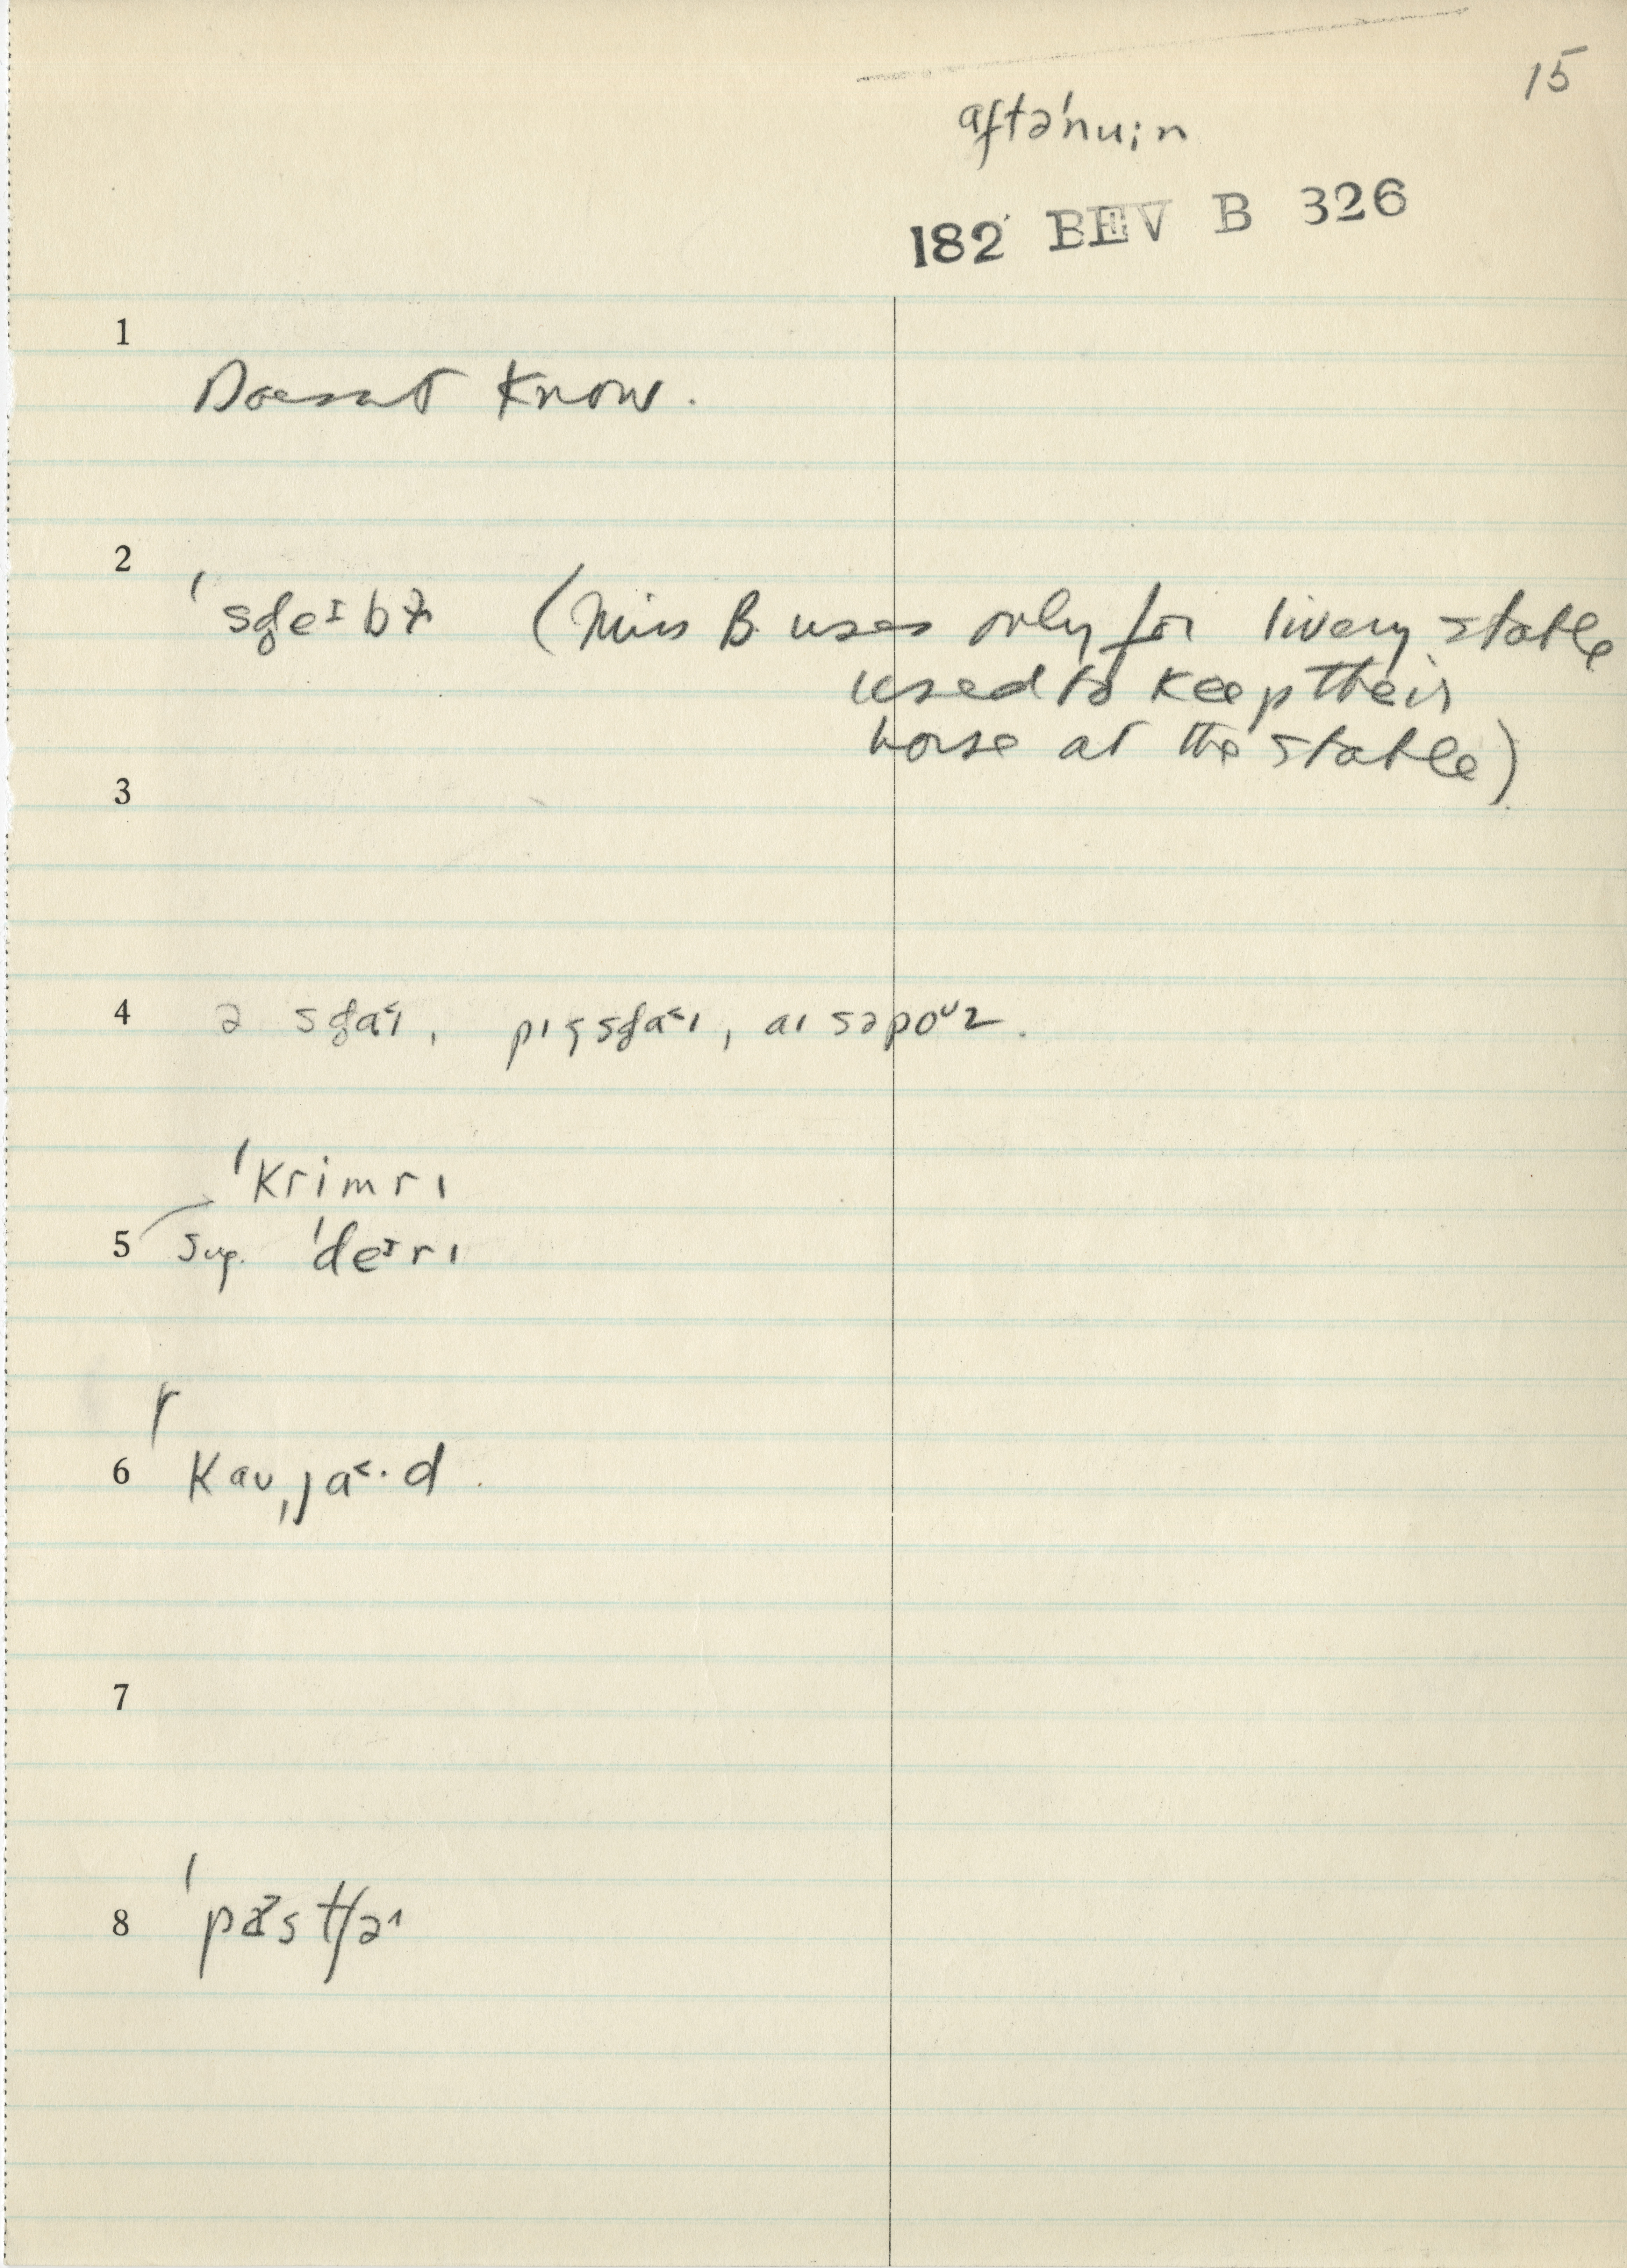 15
aftə'nu;n
182 BEV B 326
1
Doesnt know.
2
'sd̥eɪbɫ (Miss B. uses only for livery stable
used to keep their
horse at the stable)
3
4 ə sd̥a˂ɪ, pɪg̥sd̥a˂ɪ, aɪ səpoᴜz.
'krimrɪ
5 sug. 'deɪrɪ
r
6 kaʊˌja˂·d.
7
8 'pæstʃə˞